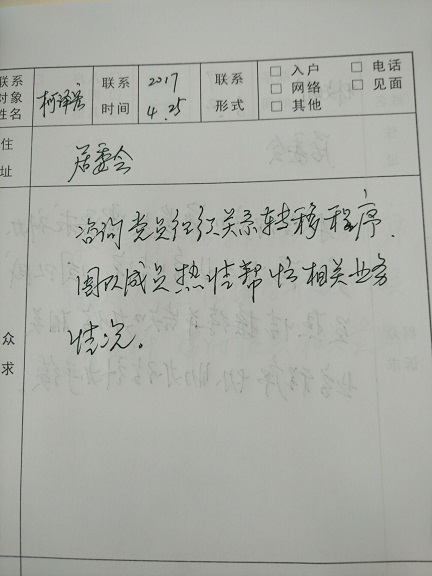 联系 对象 姓名 柯译宏 联系 时间 2017 4.25 联系 形式 □ 入户 □ 电话 □ 网络 □ 见面 □ 其他
住 址 居委会
众 求
咨询党员组织关系转移程序.
团队成员热情帮忙相关业务
情况。